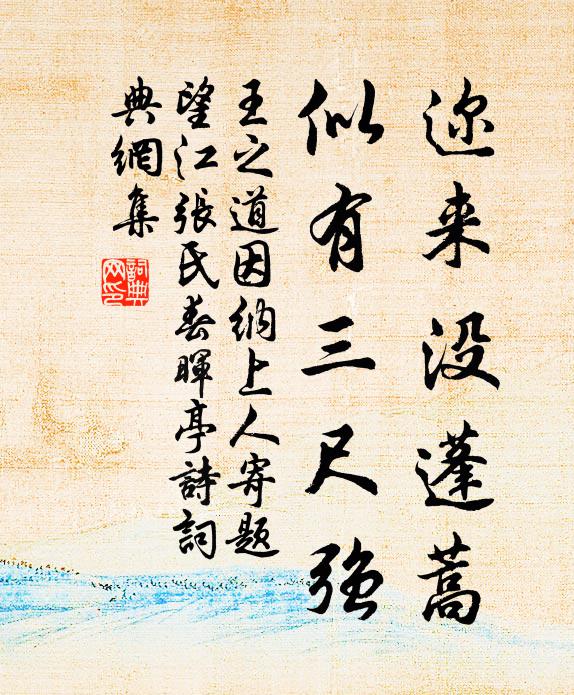 迩来没蓬蒿
似有三尺强
王之道因纳上人寄题
望江張氏春暉亭詩詞
典網集
詞典
网印